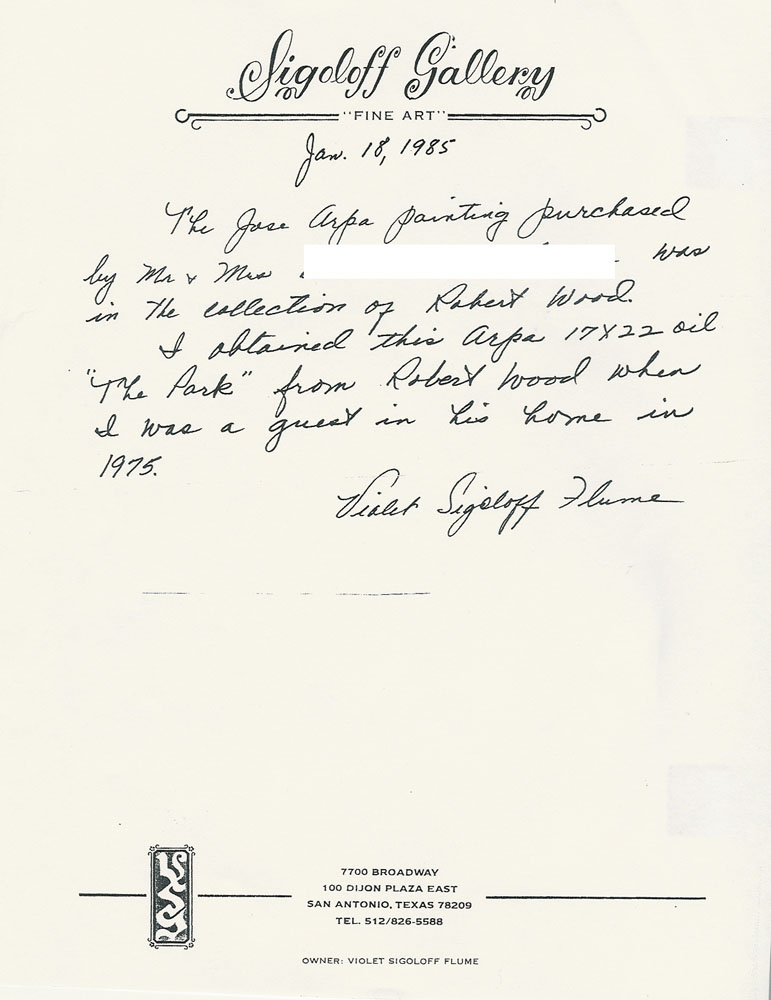 Sigoloff Gallery
"FINE ART"
Jan. 18, 1985
The Jose Arpa painting purchased
by Mr & Mrs was
in the collection of Robert Wood.
I obtained this Arpa 17X22 oil
"The Park" from Robert Wood when
I was a guest in his home in
1975.
Violet Sigoloff Flume
7700 BROADWAY
100 DIJON PLAZA EAST
SAN ANTONIO, TEXAS 78209
TEL. 512/826-5588
OWNER: VIOLET SIGOLOFF FLUME